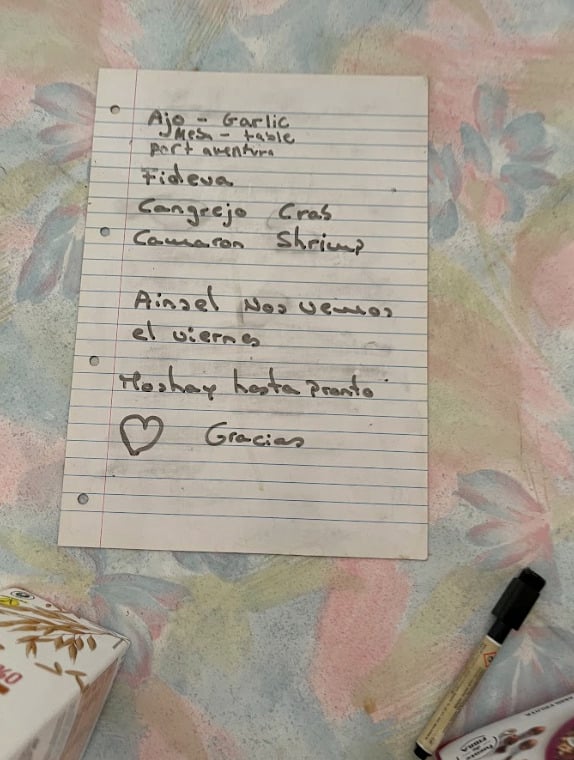 Ajo - Garlic
Mesa - table
port aventura
Fideua
Cangrejo Crab
Camaron Shrimp
Ainzel Nos vemos
el viernes
Moshay hasta pronto
Gracias